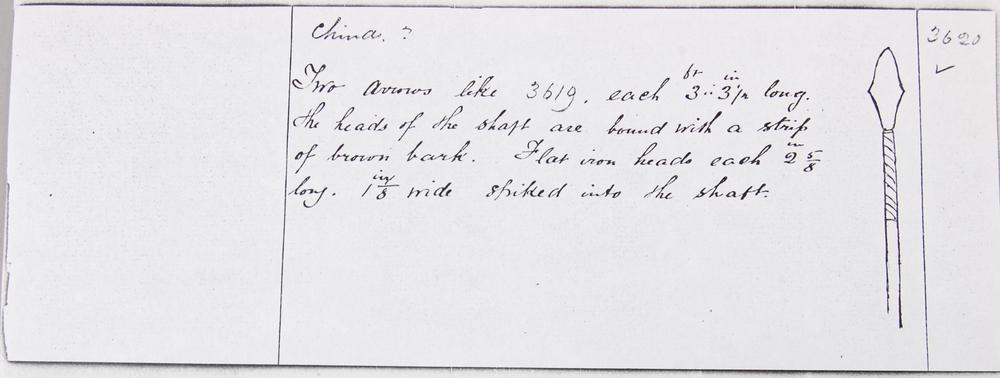 China. ?
3620
Two arrows like 3619, each 3 ft 3 in long.
The heads of the shaft are bound with a strip
of brown bark. Flat iron heads each 2 5/8 in
long. 1 1/8 in wide spiked into the shaft.